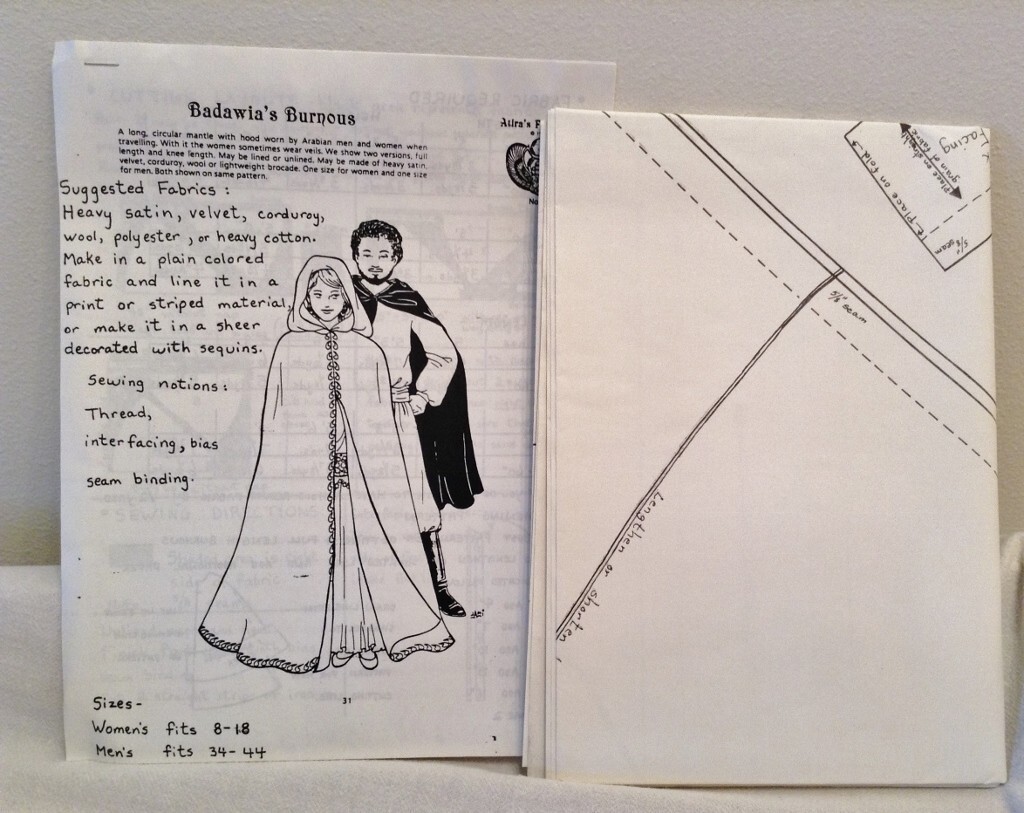 Badawia's Burnous
A long, circular mantle with hood worn by Arabian men and women when
travelling. With it the women sometimes wear veils. We show two versions, full
length and knee length. May be lined or unlined. May be made of heavy satin,
velvet, corduroy, wool or lightweight brocade. One size for women and one size
for men. Both shown on same pattern.
Suggested Fabrics :
Heavy satin, velvet, corduroy,
wool, polyester, or heavy cotton.
Make in a plain colored
fabric and line it in a
print or striped material,
or make it in a sheer
decorated with sequins.
Sewing notions:
Thread,
interfacing, bias
seam binding.
31
Sizes-
Women's fits 8-18
Men's fits 34-44
Atira's
No
Facing
Place on straight
grain of fabric
Place on fold
5/8" seam
5/8" seam
Lengthen or shorten